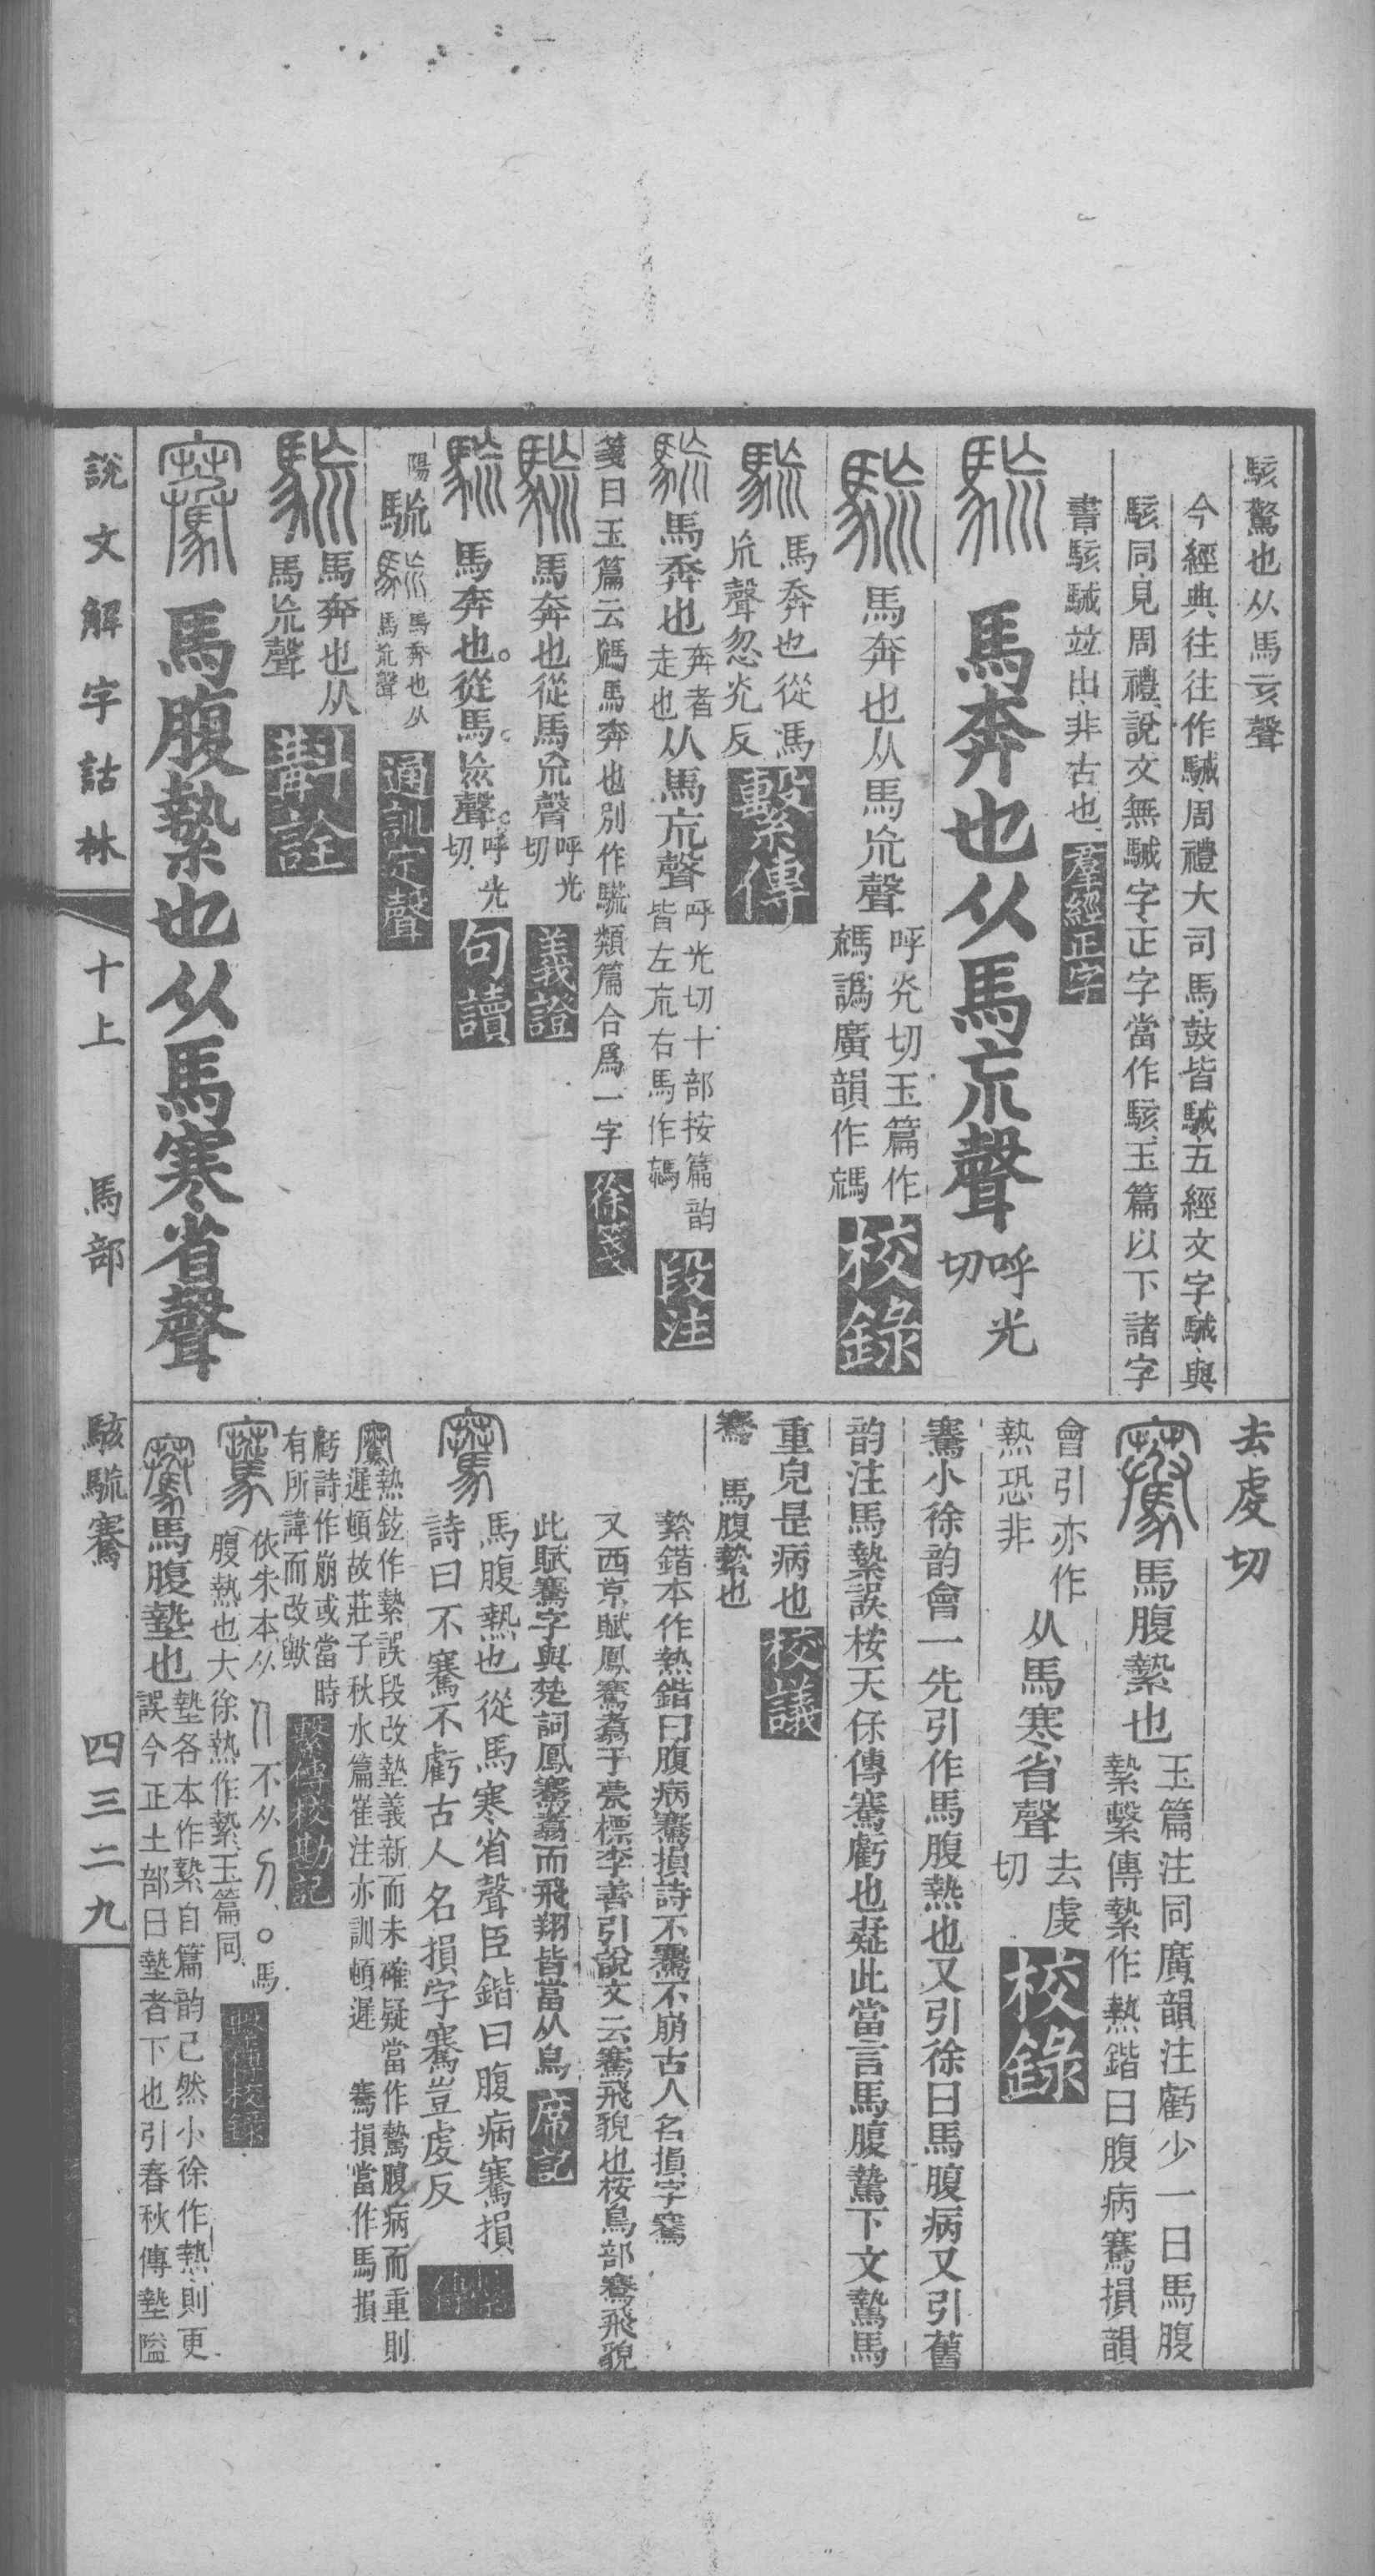 駭驚也从馬亥聲
今經典往往作駴周禮大司馬鼓皆駴五經文字駴與
駭同見周禮說文無駴字正字當作駭玉篇以下諸字
書駭駴竝出非古也羣經正字
馬奔也从馬㐬聲呼光切
馬奔也从馬㐬聲呼炗切玉篇作
䮲譌廣韻作䮲校錄
馬奔也從馬
㐬聲忽炗反繫傳
馬奔也奔者走也从馬㐬聲呼光切十部按篇韵
皆左㐬右馬作䮲段注
箋曰玉篇云䮲馬奔也別作䮲類篇合爲一字徐箋
馬奔也從馬㐬聲呼光切義證
馬奔也。從馬。㐬聲。呼光切句讀
陽馬奔也从馬㐬聲通訓定聲
馬奔也从
馬㐬聲斠詮
馬腹縶也从馬寒省聲
說文解字詁林 十上 馬部 駭 騫 四三二九
去虔切
馬腹縶也玉篇注同廣韻注虧少一曰馬腹
縶繫傳縶作熱鍇曰腹病騫損韻
會引亦作
熱恐非从馬寒省聲去虔切校錄
騫小徐韵會一先引作馬腹熱也又引徐曰馬腹病又引舊
韵注馬縶誤桉天保傳騫虧也疑此當言馬腹騺下文騺馬
重皃是病也校議
騫 馬腹縶也
縶鍇本作熱鍇曰腹病騫損詩不騫不崩古人名損字騫
又西京賦鳳騫翥于甍標李善引說文云騫飛貌也桉鳥部騫飛貌
此賦騫字與楚詞鳳騫翥而飛翔皆當从鳥席記
馬腹熱也從馬寒省聲臣鍇曰腹病騫損
詩曰不騫不虧古人名損字騫豈虔反繫傳
熱鉉作縶誤段改墊義新而未確疑當作騺腹病而重則
遲頓故莊子秋水篇崔注亦訓頓遲 騫損當作馬損
虧詩作崩或當時
有所諱而改歟繫傳校勘記
依朱本从 不从 。馬
腹熱也大徐熱作縶玉篇同繫傳校錄
馬腹墊也墊各本作縶自篇韵已然小徐作熱則更
誤今正土部曰墊者下也引春秋傳墊隘